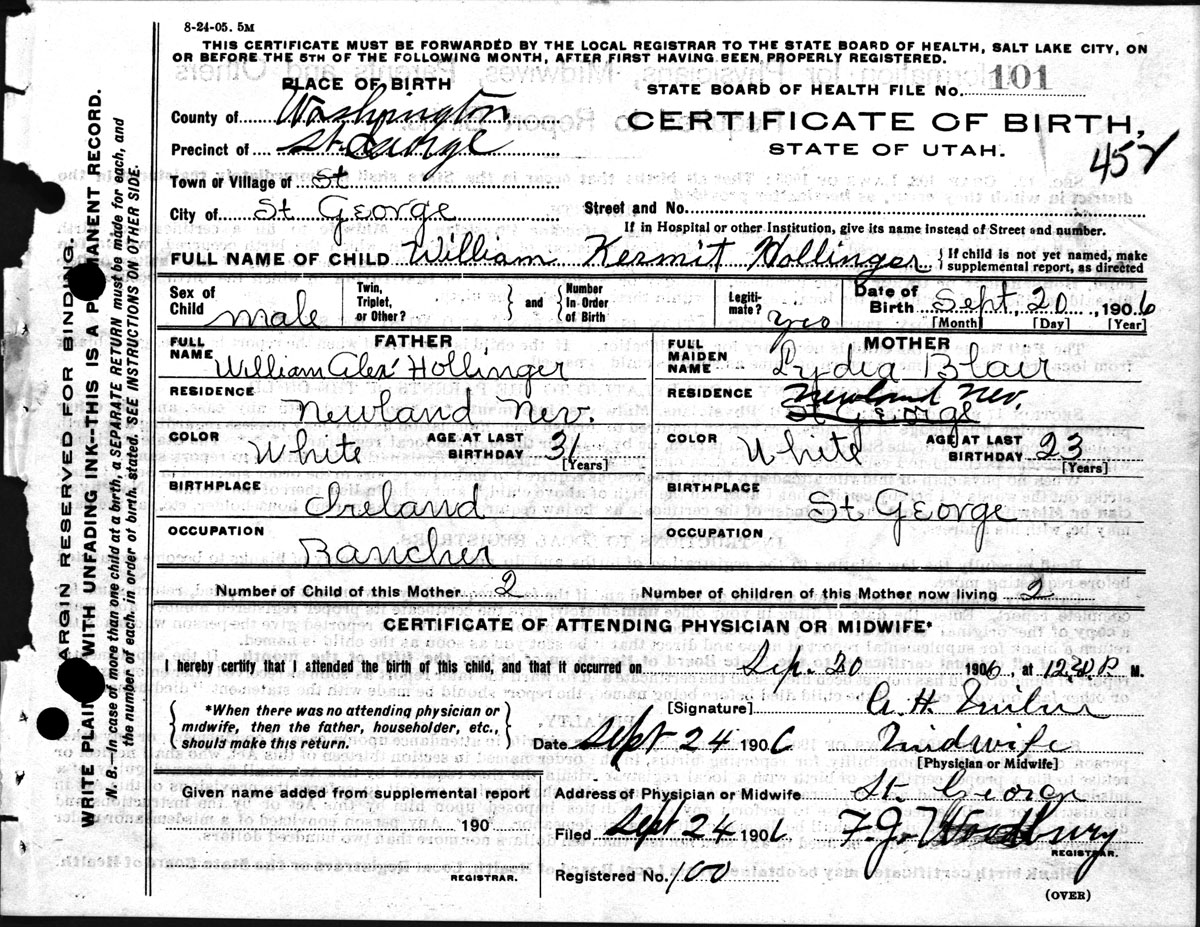 8-24-05. 5M
THIS CERTIFICATE MUST BE FORWARDED BY THE LOCAL REGISTRAR TO THE STATE BOARD OF HEALTH, SALT LAKE CITY, ON
OR BEFORE THE 5TH OF THE FOLLOWING MONTH, AFTER FIRST HAVING BEEN PROPERLY REGISTERED.
PLACE OF BIRTH
STATE BOARD OF HEALTH FILE No. 101
County of Washington
CERTIFICATE OF BIRTH,
Precinct of St. George
STATE OF UTAH.
452
Town or Village of St
City of St George
Street and No.
If in Hospital or other Institution, give its name instead of Street and number.
FULL NAME OF CHILD William Kermit Hollinger { If child is not yet named, make
supplemental report, as directed
Sex of Child male
Twin, Triplet, or Other? } and { Number In Order of Birth
Legiti- mate? yes
Date of Birth Sept. 20, 1906
[Month] [Day] [Year]
FATHER
FULL NAME William Alex' Hollinger
RESIDENCE Newland Nev.
COLOR White AGE AT LAST BIRTHDAY 31
[Years]
BIRTHPLACE Ireland
OCCUPATION Rancher
MOTHER
FULL MAIDEN NAME Lydia Blair
RESIDENCE Newland Nev
St George
COLOR White AGE AT LAST BIRTHDAY 23
[Years]
BIRTHPLACE St George
OCCUPATION
Number of Child of this Mother 2 Number of children of this Mother now living 2
CERTIFICATE OF ATTENDING PHYSICIAN OR MIDWIFE*
I hereby certify that I attended the birth of this child, and that it occurred on Sep. 20 1906, at 12.30 P M.
{ *When there was no attending physician or
midwife, then the father, householder, etc.,
should make this return. }
[Signature] A. H.
Date Sept 24 1906 Midwife
[Physician or Midwife]
Given name added from supplemental report
190
REGISTRAR.
Address of Physician or Midwife St. George
Filed Sept 24 1906 F. J. Woodbury
REGISTRAR.
Registered No. 100
(OVER)
MARGIN RESERVED FOR BINDING.
WRITE PLAINLY WITH UNFADING INK--THIS IS A PERMANENT RECORD.
N. B.—In case of more than one child at a birth, a SEPARATE RETURN must be made for each, and
the number of each, in order of birth, stated. SEE INSTRUCTIONS ON OTHER SIDE.